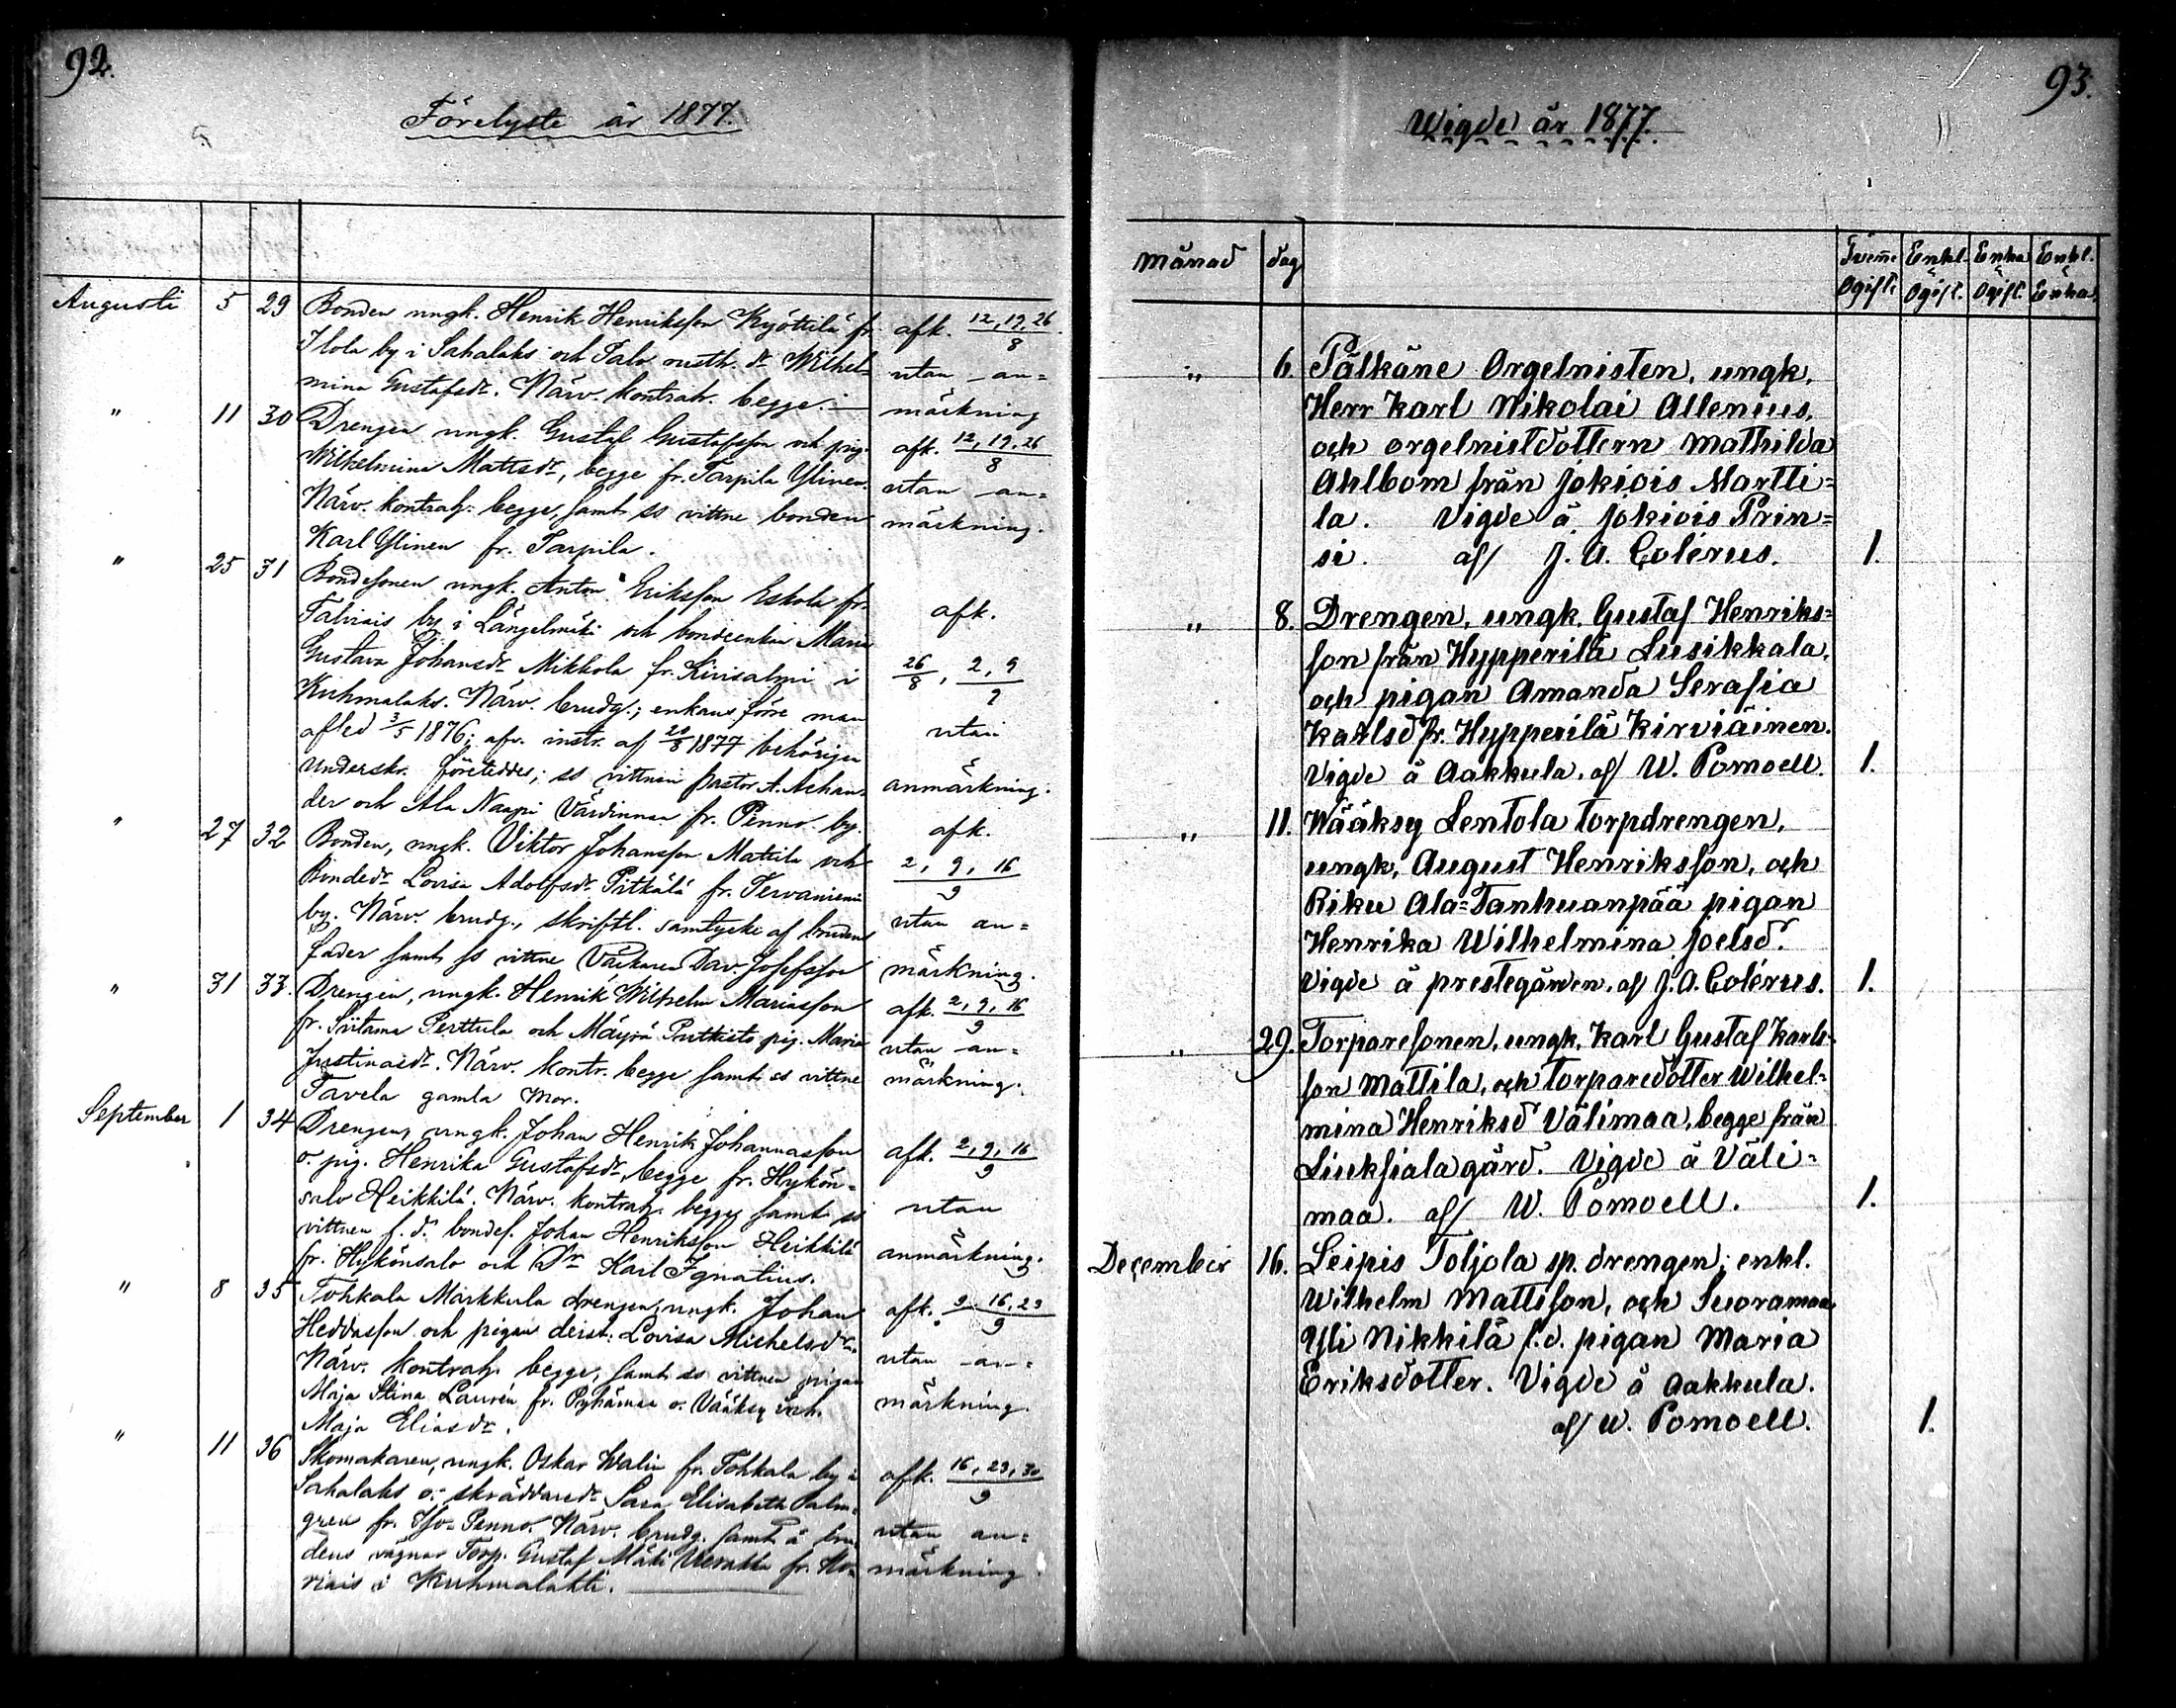 92.
Förelyste år 1877.
Augusti 5 29 Bonden ungk. Henrik Henriksson Kyöttilä fr. afk. 12, 19, 26/8
Ilola by i Sahalaks och Salo rusth. dr Wilhel= utan an=
mina Gustafsdr. Närv. kontrah. begge. — märkning
" 11 30 Drengen ungk. Gustaf Gustafsson och pig. afk. 12, 19, 26/8
Wilhelmina Mattsdr, begge fr. Tarpila Ylinen. utan an=
Närv. kontrah. begge, samt ss vittne bonden märkning.
Karl Ylinen fr. Tarpila.
" 25 31 Bondesonen ungk. Anton Eriksson Eskola fr.
Talviais by i Längelmäki och bondeenkan Maria afk.
Gustava Johansdr Mikkola fr. Kirisalmi i 26/8, 2, 9/9
Kuhmalaks. Närv. brudg.; enkans förre man
afled 3/5 1876; afv. instr. af 20/8 1877 behörigen utan
underskr. företeddes; ss vittnen pastor A. Achan= anmärkning.
der och Ala Naappi Värdinnan fr. Penno by.
" 27 32 Bonden, ungk. Viktor Johansson Mattila och afk.
Bondedr Lovisa Adolfsdr Pitkälä fr. Tervaniemi 2, 9, 16/9
by. Närv. brudg., skriftl. samtycke af brudens utan an=
fader samt ss vittne Väckaren Dav. Josefsson märkning.
" 31 33. Drengen, ungk. Henrik Wilhelm Mariasson afk. 2, 9, 16/9
fr. Siitama Perttula och Mäyrä Putkisto pig. Maria utan an=
Justinasdr. Närv. kontr. begge samt ss vittne märkning.
Tavela gamla Mor.
September 1 34 Drengen, ungk. Johan Henrik Johannasson
o. pig. Henrika Gustafsdr, begge fr. Hykön= afk. 2, 9, 16/9
salo Heikkilä. Närv. kontrah. begge, samt ss utan
vittnen f. d. bondes. Johan Henriksson Heikkilä
fr. Hykönsalo och Dr Karl Ignatius. anmärkning.
" 8 35 Tohkala Markkula drengen, ungk. Johan afk. 9, 16, 23/9
Heddasson och pigan derist. Lovisa Michelsdr. utan an=
Närv. kontrah. begge, samt ss vittnen pigan
Maja Stina Laurén fr. Pyhämaa o. Vääksy inh. märkning.
Maja Eliasdr.
" 11 36 Skomakaren, ungk. Oskar Walin fr. Tohkala by i afk. 16, 23, 30/9
Sahalaks o. skräddaredr Sara Elisabeth Palm=
gren fr. Iso-Penno. Närv. brudg. samt å bru= utan an=
dens vägnar Torp. Gustaf Mäki fr. märkning.
i Kuhmalahti.
93.
Wigde år 1877.
Månad dag Tvenne Ogift. Enkl. Ogift. Enka Ogift. Enkl. Enka
" 6. Pälkäne Orgelnisten, ungk.
Herr Karl Nikolai Allenius,
och orgelnistdottern Mathilda
Ahlbom från Jokiois Martti=
la. Vigde å Jokiois Prin=
si. af J. A. Colérus. 1.
" 8. Drengen, ungk. Gustaf Henriks=
son från Hypperilä Lusikkala,
och pigan Amanda Serafia
Karlsd fr. Hypperilä Kirviäinen.
Vigde å Aakkula, af W. Pomoell. 1.
" 11. Wääksy Lentola torpdrengen,
ungk, August Henriksson, och
Riku Ala=Tanhuanpää pigan
Henrika Wilhelmina Joelsd.
Vigde å prestegården, af J. A. Colérus. 1.
" 29. Torparesonen, ungk. Karl Gustaf Karls=
son Mattila, och torparedotter Wilhel=
mina Henriksd Välimaa, begge från
Liuksiala gård. Vigde å Väli=
maa. af W. Pomoell. 1.
December 16. Leipis Toljola sp. drengen; enkl.
Wilhelm Mattsson, och Suoramaa
Yli Nikkilä f.d. pigan Maria
Eriksdotter. Vigde å Aakkula.
af W. Pomoell. 1.